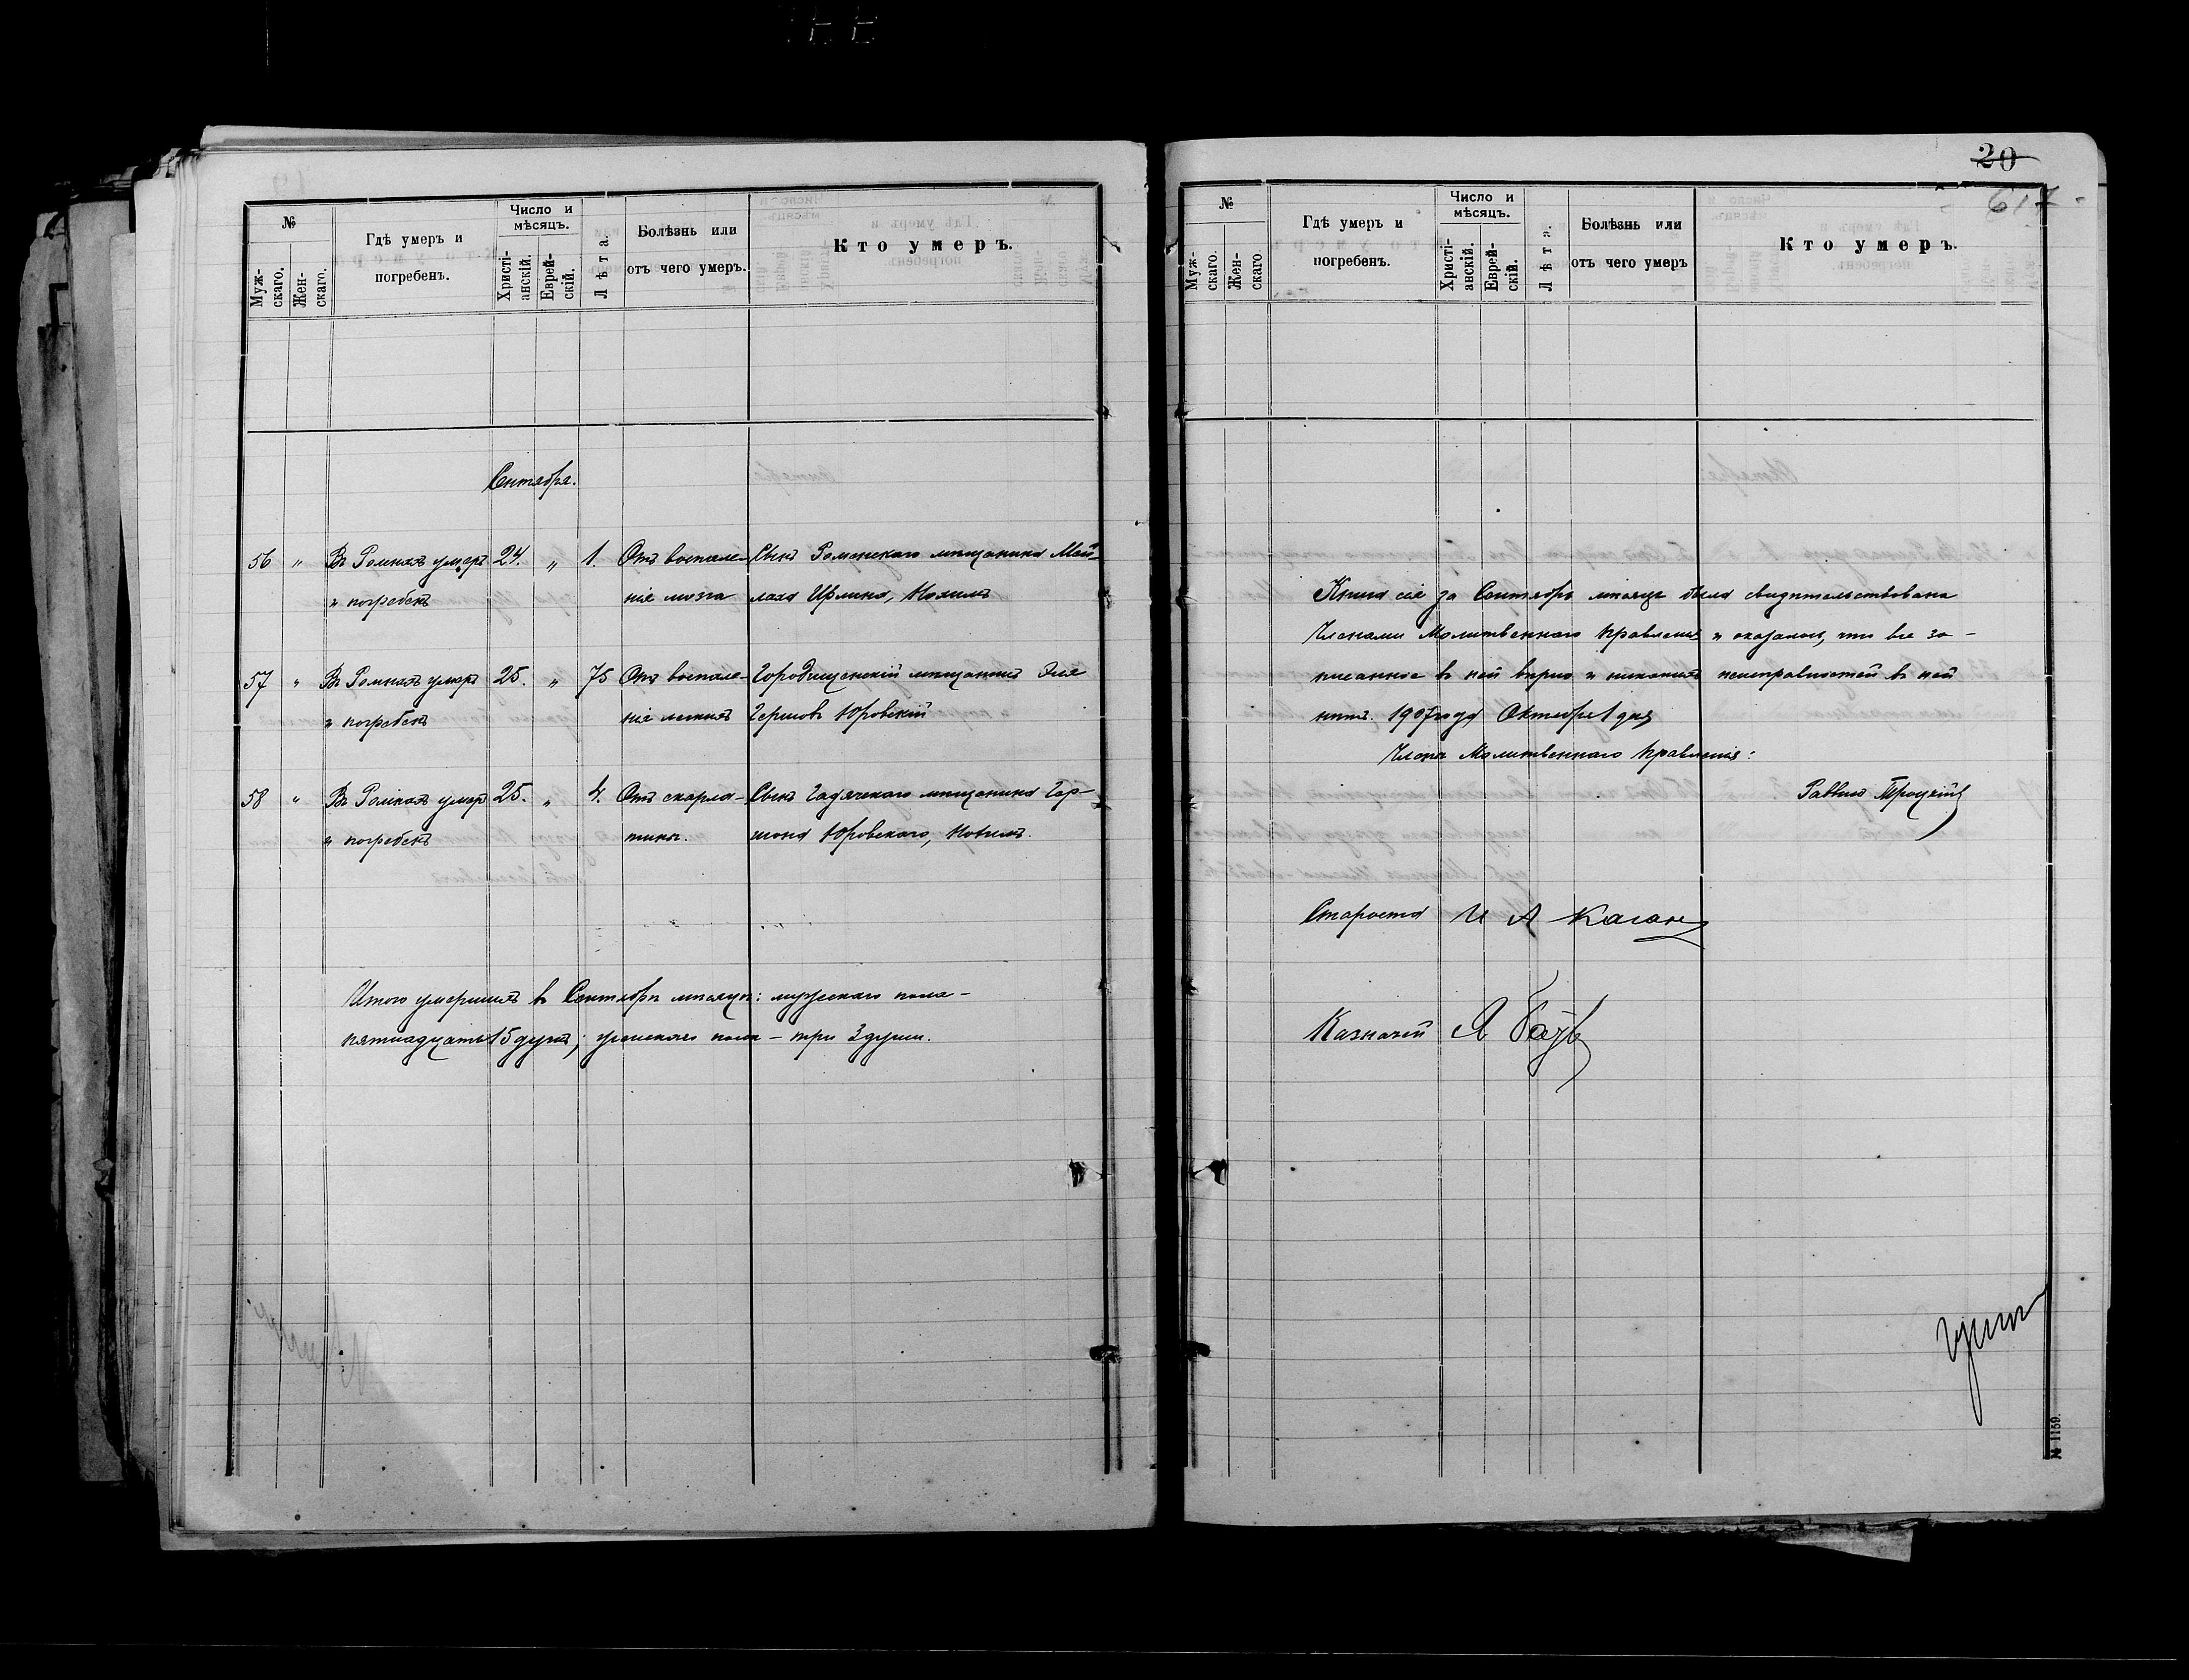 №
Муж-
скаго.
Жен-
скаго.
Гдѣ умеръ и
погребенъ.
Число и
мѣсяцъ.
Христі-
анскій.
Еврей-
скій.
Лѣта.
Болѣзнь или
отъ чего умеръ.
Кто умеръ.
Сентября.
56 " Въ Ромнахъ умеръ 24. " 1. Отъ воспале- Сынъ Роменскаго мѣщанина
и погребенъ нія мозга
57 " Въ Ромнахъ умеръ 25. " 75 Отъ воспале- Городищенскій мѣщанинъ Эля
и погребенъ нія легкихъ Гершовъ Юровскій
58 " Въ Ромнахъ умеръ 25. " 4. Отъ скарла- Сынъ Гадячскаго мѣщанина Гер-
и погребенъ тины. шона Юровскаго,
Итого умершихъ въ Сентябрѣ мѣсяцѣ: мужескаго пола -
пятнадцать 15 душъ; женскаго пола - три 3 души.
20
617
№
Муж-
скаго.
Жен-
скаго.
Гдѣ умеръ и
погребенъ.
Число и
мѣсяцъ.
Христі-
анскій.
Еврей-
скій.
Лѣта.
Болѣзнь или
отъ чего умеръ
Кто умеръ.
Книга сія за Сентябрь мѣсяцъ была свидѣтельствована
Членами Молитвеннаго Правленія и оказалось, что все за-
писанное въ ней вѣрно и никакихъ неисправностей въ ней
нѣтъ. 1907 года Октября 1 дня
Члены Молитвеннаго Правленія:
Раввинъ Троцкій
Староста И А Каган
Казначей
№ 1159.